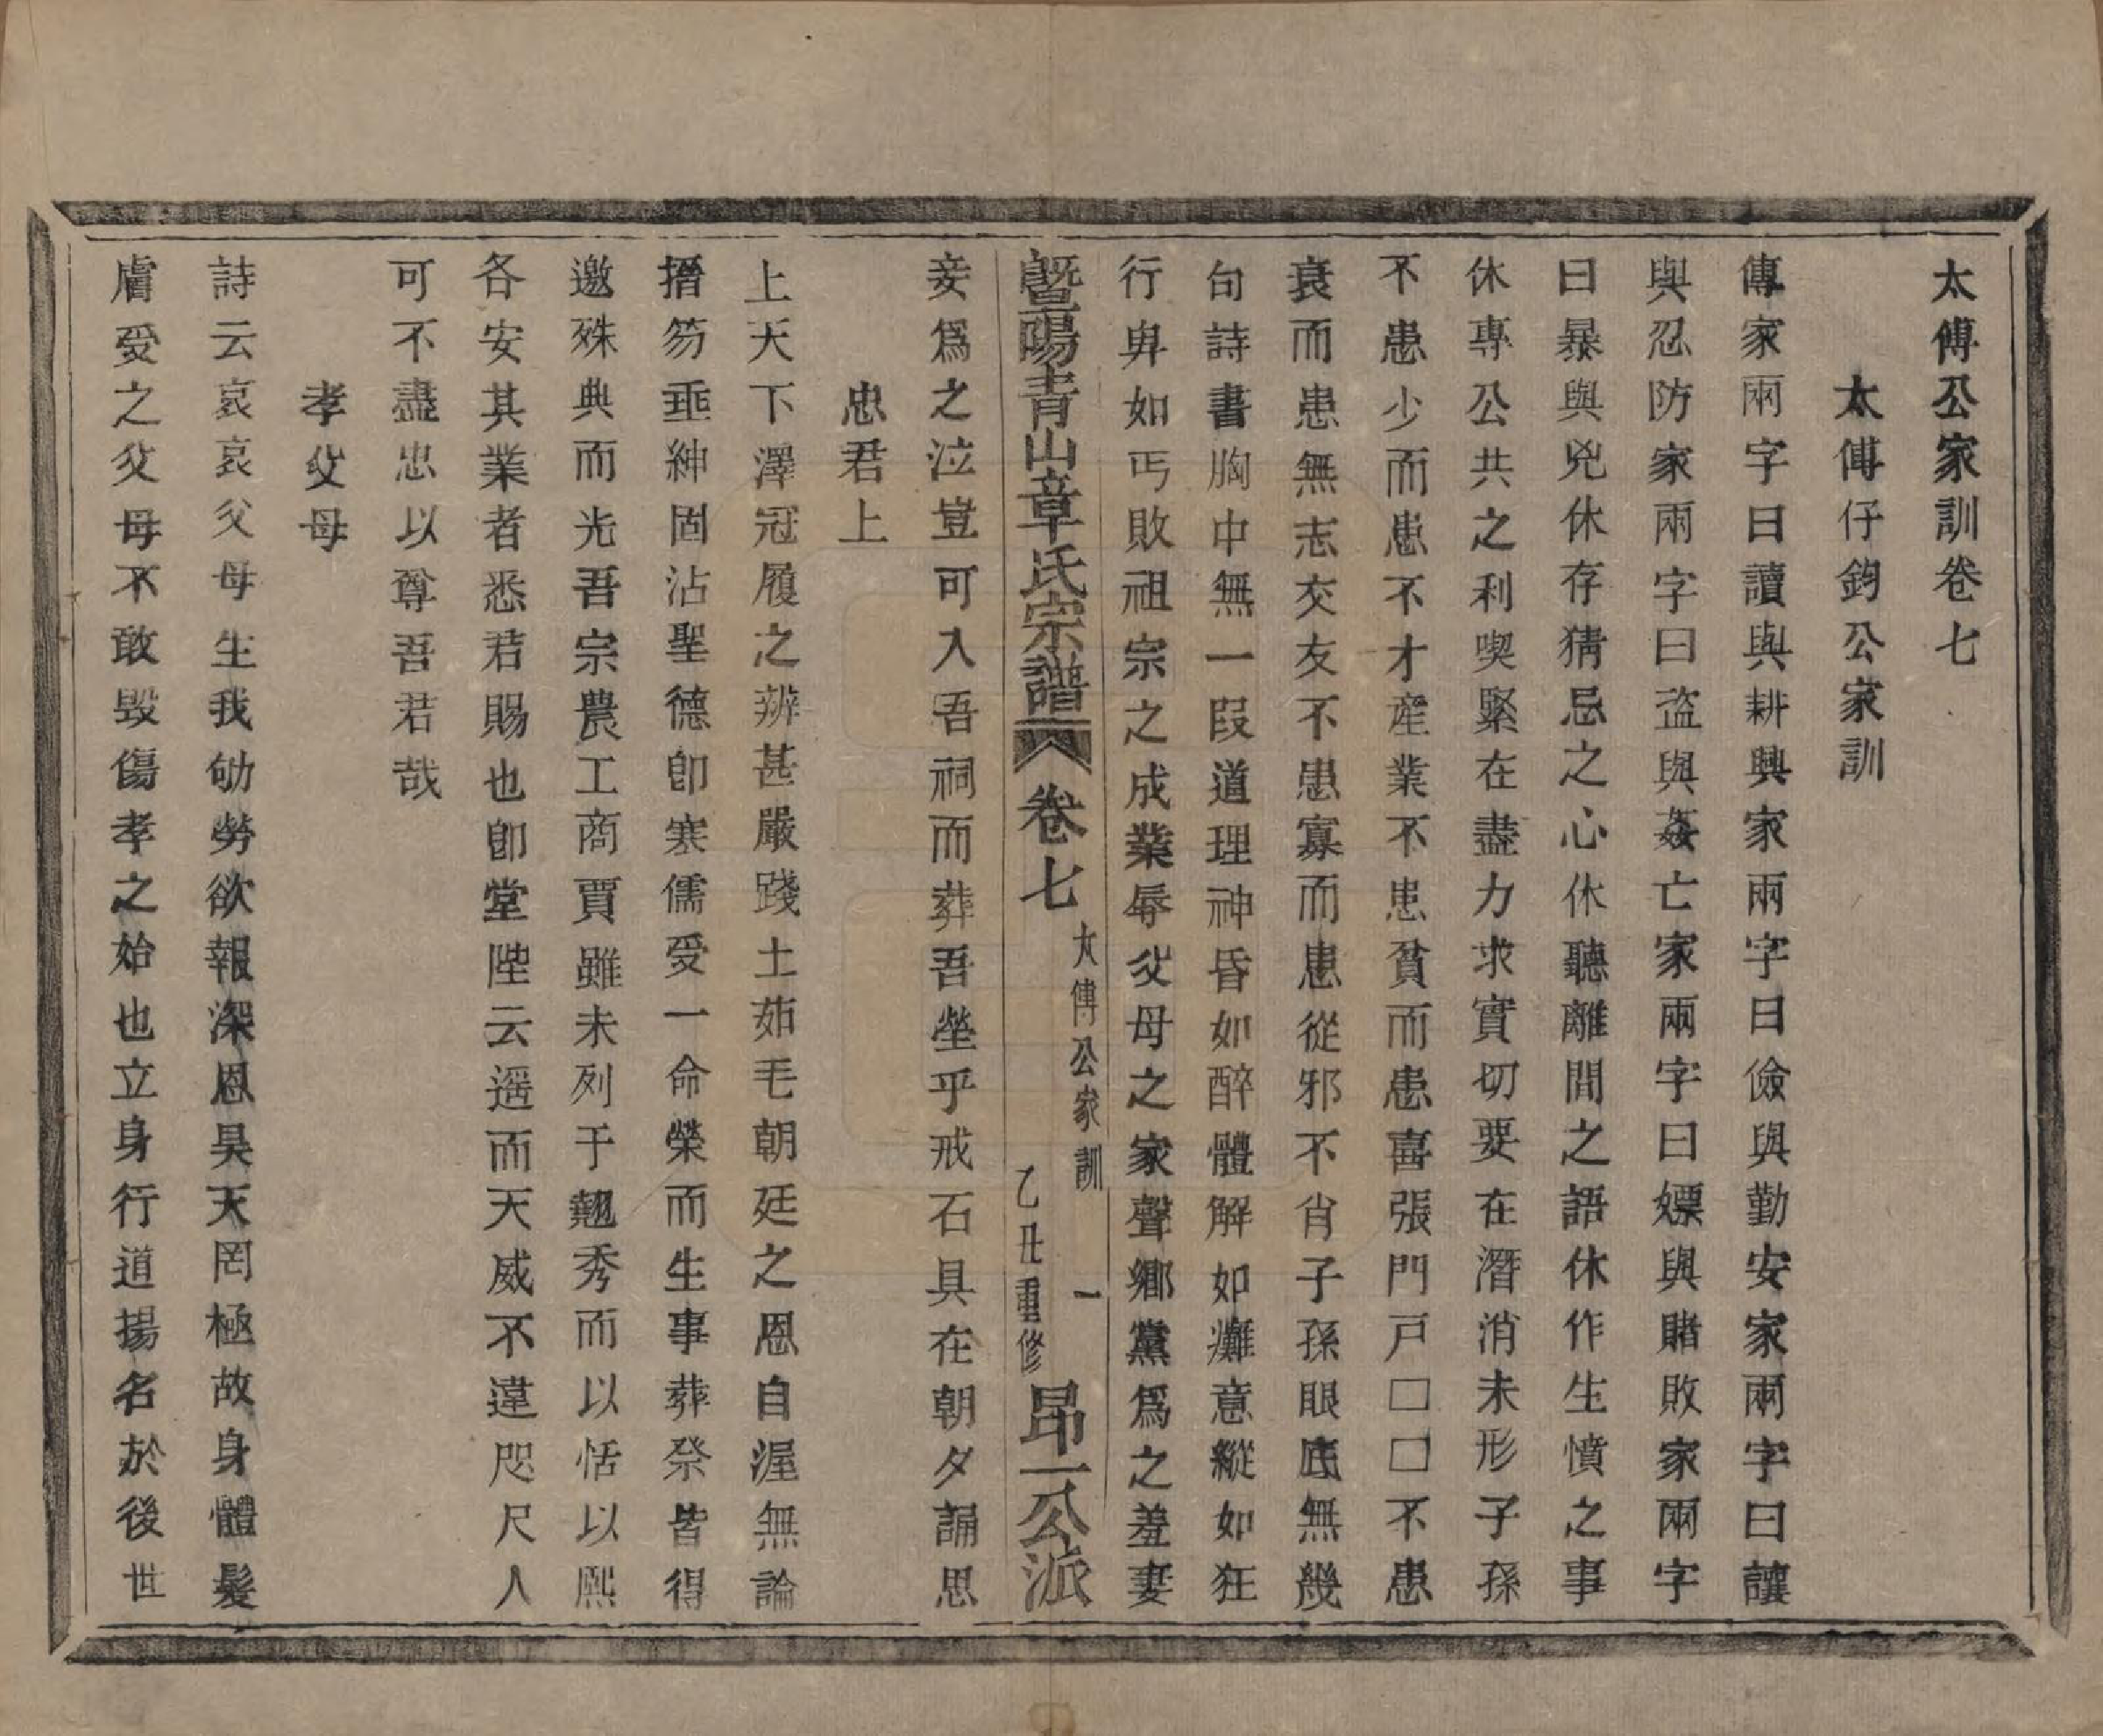 太傅公家訓卷七
太傅仔鈞公家訓
傳家兩字曰讀與耕興家兩字曰儉與勤安家兩字曰讓
與忍防家兩字曰盜與姦亡家兩字曰嫖與賭敗家兩字
曰暴與兇休存猜忌之心休聽離間之語休作生憤之事
休專公共之利喫緊在盡力求實切要在潛消未形子孫
不患少而患不才產業不患貧而患喜張門戸□□不患
衰而患無志交友不患寡而患從邪不肖子孫眼底無幾
句詩書胸中無一段道理神昏如醉體解如癱意縱如狂
行卑如丐敗祖宗之成業辱父母之家聲鄉黨爲之羞妻
暨陽青山章氏宗譜 卷七 太傅公家訓 一 乙丑重修 昂一公派
妾爲之泣豈可入吾祠而葬吾塋乎戒石具在朝夕誦思
忠君上
上天下澤冠履之辨甚嚴踐土茹毛朝廷之恩自渥無論
搢笏垂紳固沾聖德卽寒儒受一命榮而生事葬祭皆得
邀殊典而光吾宗農工商賈雖未列于翹秀而以恬以熙
各安其業者悉君賜也卽堂陛云遥而天威不違咫尺人
可不盡忠以尊吾君哉
孝父母
詩云哀哀父母生我劬勞欲報深恩昊天罔極故身體髮
膚受之父母不敢毀傷孝之始也立身行道揚名於後世